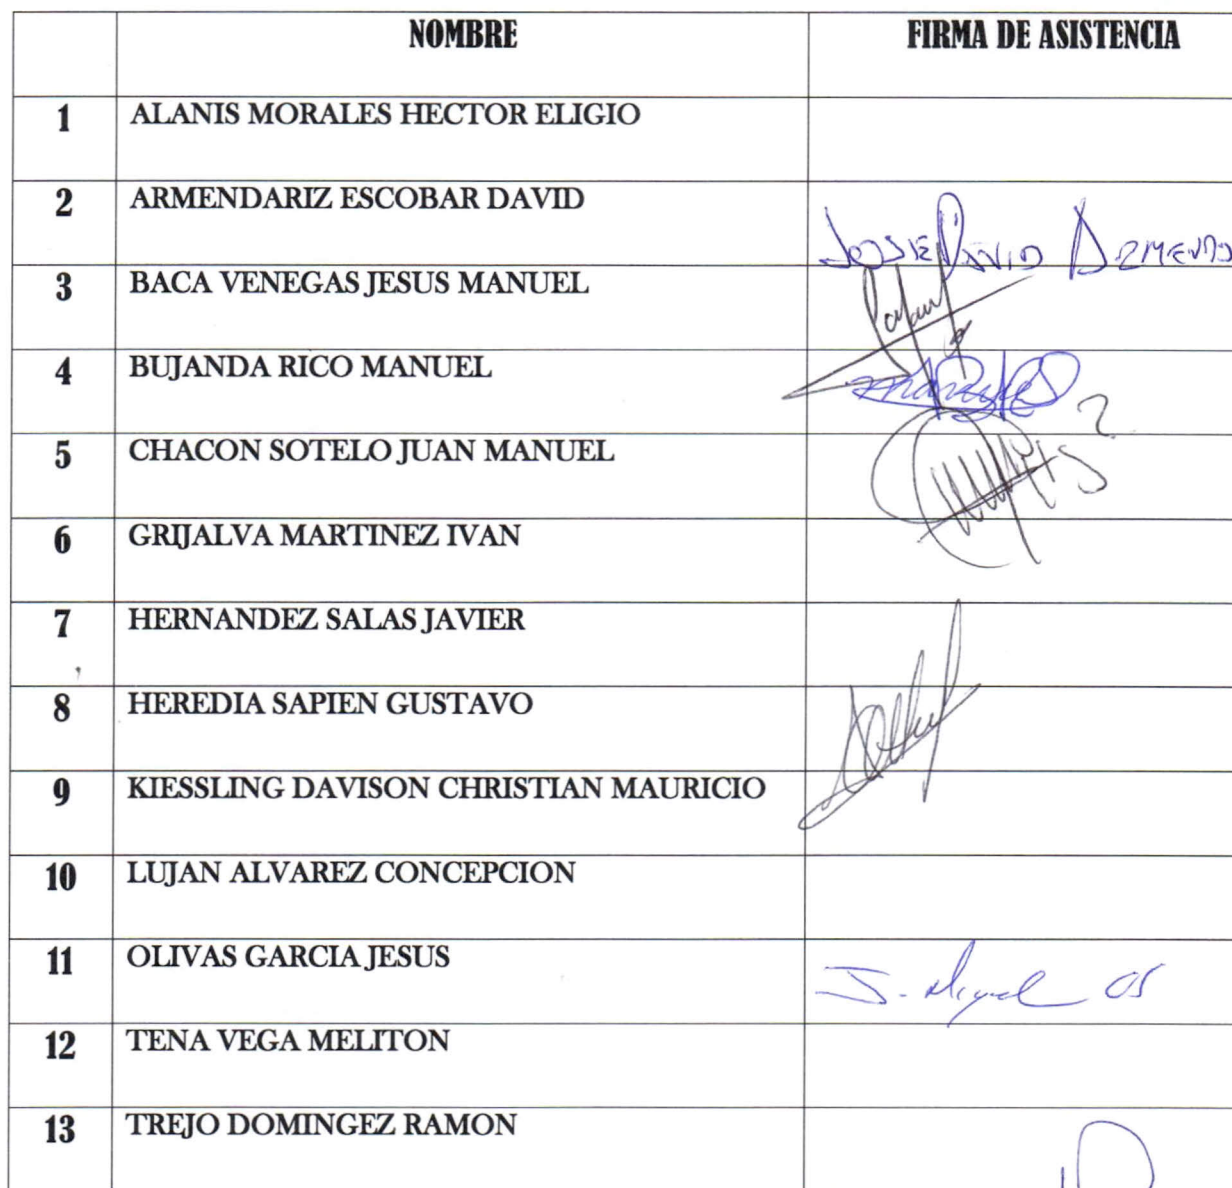 NOMBRE FIRMA DE ASISTENCIA
1 ALANIS MORALES HECTOR ELIGIO
2 ARMENDARIZ ESCOBAR DAVID
JOSE DAVID ARMENDA
3 BACA VENEGAS JESUS MANUEL
4 BUJANDA RICO MANUEL
5 CHACON SOTELO JUAN MANUEL
6 GRIJALVA MARTINEZ IVAN
7 HERNANDEZ SALAS JAVIER
8 HEREDIA SAPIEN GUSTAVO
9 KIESSLING DAVISON CHRISTIAN MAURICIO
10 LUJAN ALVAREZ CONCEPCION
11 OLIVAS GARCIA JESUS
J. Miguel OS
12 TENA VEGA MELITON
13 TREJO DOMINGEZ RAMON